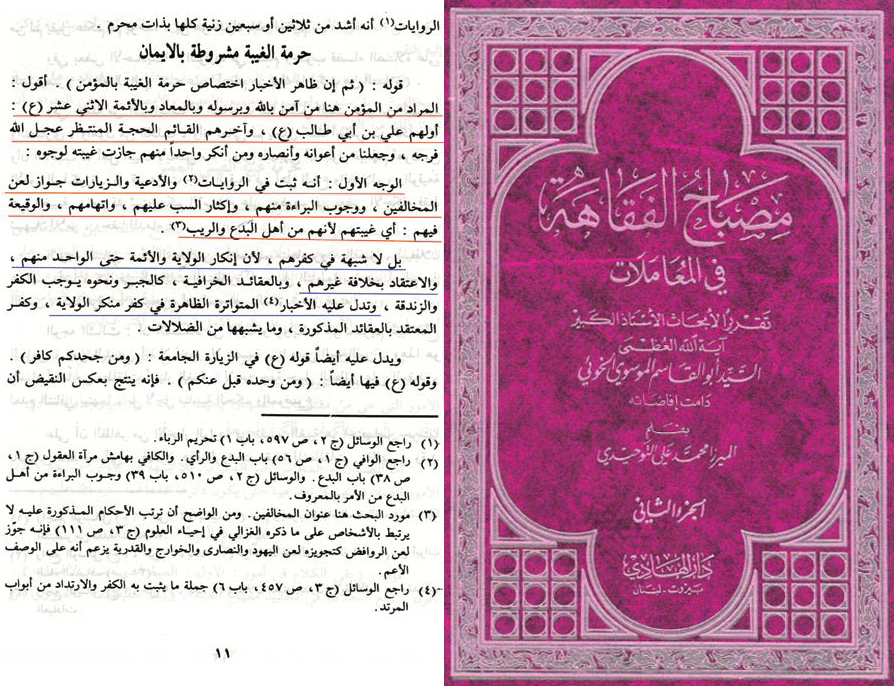 الروايات(١) أنه أشد من ثلاثين أو سبعين زنية كلها بذات محرم .
حرمة الغيبة مشروطة بالايمان
قوله : ( ثم إن ظاهر الأخبار اختصاص حرمة الغيبة بالمؤمن ) . أقول :
المراد من المؤمن هنا من آمن بالله وبرسوله وبالمعاد وبالأئمة الاثني عشر (ع) :
أولهم علي بن أبي طالب (ع) ، وآخرهم القائم الحجة المنتظر عجل الله
فرجه ، وجعلنا من أعوانه وأنصاره ومن أنكر واحداً منهم جازت غيبته لوجوه :
الوجه الأول : أنه ثبت في الروايات(٢) والأدعية والزيارات جواز لعن
المخالفين ، ووجوب البراءة منهم ، وإكثار السب عليهم ، واتهامهم ، والوقيعة
فيهم : أي غيبتهم لأنهم من أهل البدع والريب(٣) .
بل لا شبهة في كفرهم ، لأن إنكار الولاية والأئمة حتى الواحد منهم ،
والاعتقاد بخلافة غيرهم ، وبالعقائد الخرافية ، كالجبر ونحوه يوجب الكفر
والزندقة ، وتدل عليه الأخبار(٤) المتواترة الظاهرة في كفر منكر الولاية ، وكفر
المعتقد بالعقائد المذكورة ، وما يشبهها من الضلالات .
ويدل عليه أيضاً قوله (ع) في الزيارة الجامعة : ( ومن جحدكم كافر ) .
وقوله (ع) فيها أيضاً : ( ومن وحده قبل عنكم ) . فإنه ينتج بعكس النقيض أن
(١) راجع الوسائل (ج ٢ ، ص ٥٩٧ ، باب ١) تحريم الرباء .
(٢) راجع الوافي (ج ١ ، ص ٥٦) باب البدع والرأي . والكافي بهامش مرآة العقول (ج ١ ،
ص ٣٨) باب البدع . والوسائل (ج ٢ ، ص ٥١٠ ، باب ٣٩) وجوب البراءة من أهل
البدع من الأمر بالمعروف .
(٣) مورد البحث هنا عنوان المخالفين . ومن الواضح أن ترتب الأحكام المذكورة عليه لا
يرتبط بالأشخاص على ما ذكره الغزالي في إحياء العلوم (ج ٣ ، ص ١١١) فإنه جوّز
لعن الروافض كتجويزه لعن اليهود والنصارى والخوارج والقدرية بزعم أنه على الوصف
الأعم .
(٤) راجع الوسائل (ج ٣ ، ص ٤٥٧ ، باب ٦) جملة ما يثبت به الكفر والارتداد من أبواب
المرتد .
١١
مصباح الفقاهة
في المعاملات
تقرير الأبحاث الأستاذ الكبير
آية الله العظمى
السيد أبو القاسم الموسوي الخوئي
دامت إفاضاته
بقلم
الميرزا محمد علي التوحيدي
الجزء الثاني
دار الهادي
بيروت - لبنان